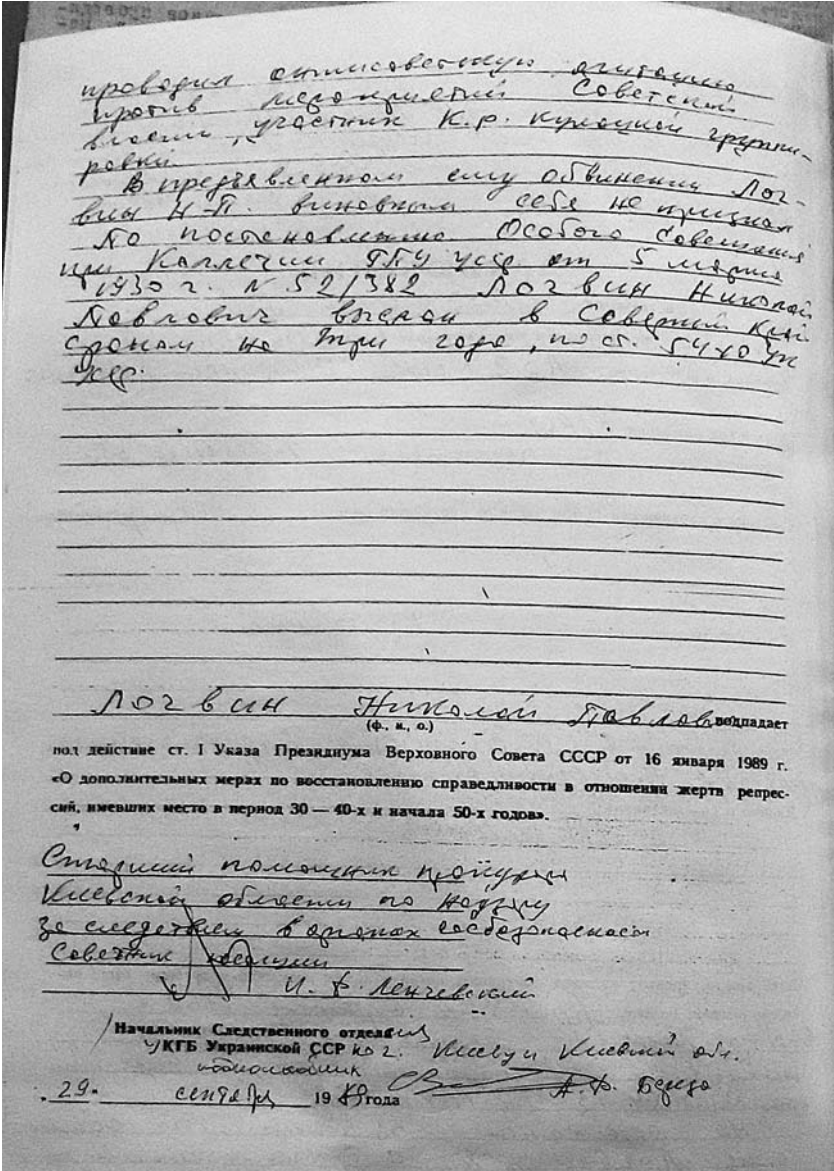 проводил антисоветскую агитацию
против мероприятий Советской
власти, участник К.р. кулацкой группи-
ровки.
В предъявленном ему обвинении Лог-
вин Н.П. виновным себя не признал
По постановлению Особого Совещания
при Коллегии ГПУ УССР от 5 марта
1930 г. N 52/382 Логвин Николай
Павлович выслан в Северный край
сроком на три года, по ст. 54-10 УК
УССР.
Логвин Николай Павлович подпадает
(ф., и., о.)
под действие ст. I Указа Президиума Верховного Совета СССР от 16 января 1989 г.
«О дополнительных мерах по восстановлению справедливости в отношении жертв репрес-
сий, имевших место в период 30 — 40-х и начала 50-х годов».
Старший помощник прокурора
Киевской области по надзору
за следствием в органах госбезопасности
советник юстиции
Ленчевский
Начальник Следственного отдела
УКГБ Украинской ССР по г. Киеву и Киевской обл.
подполковник
"29" сентября 1989 года